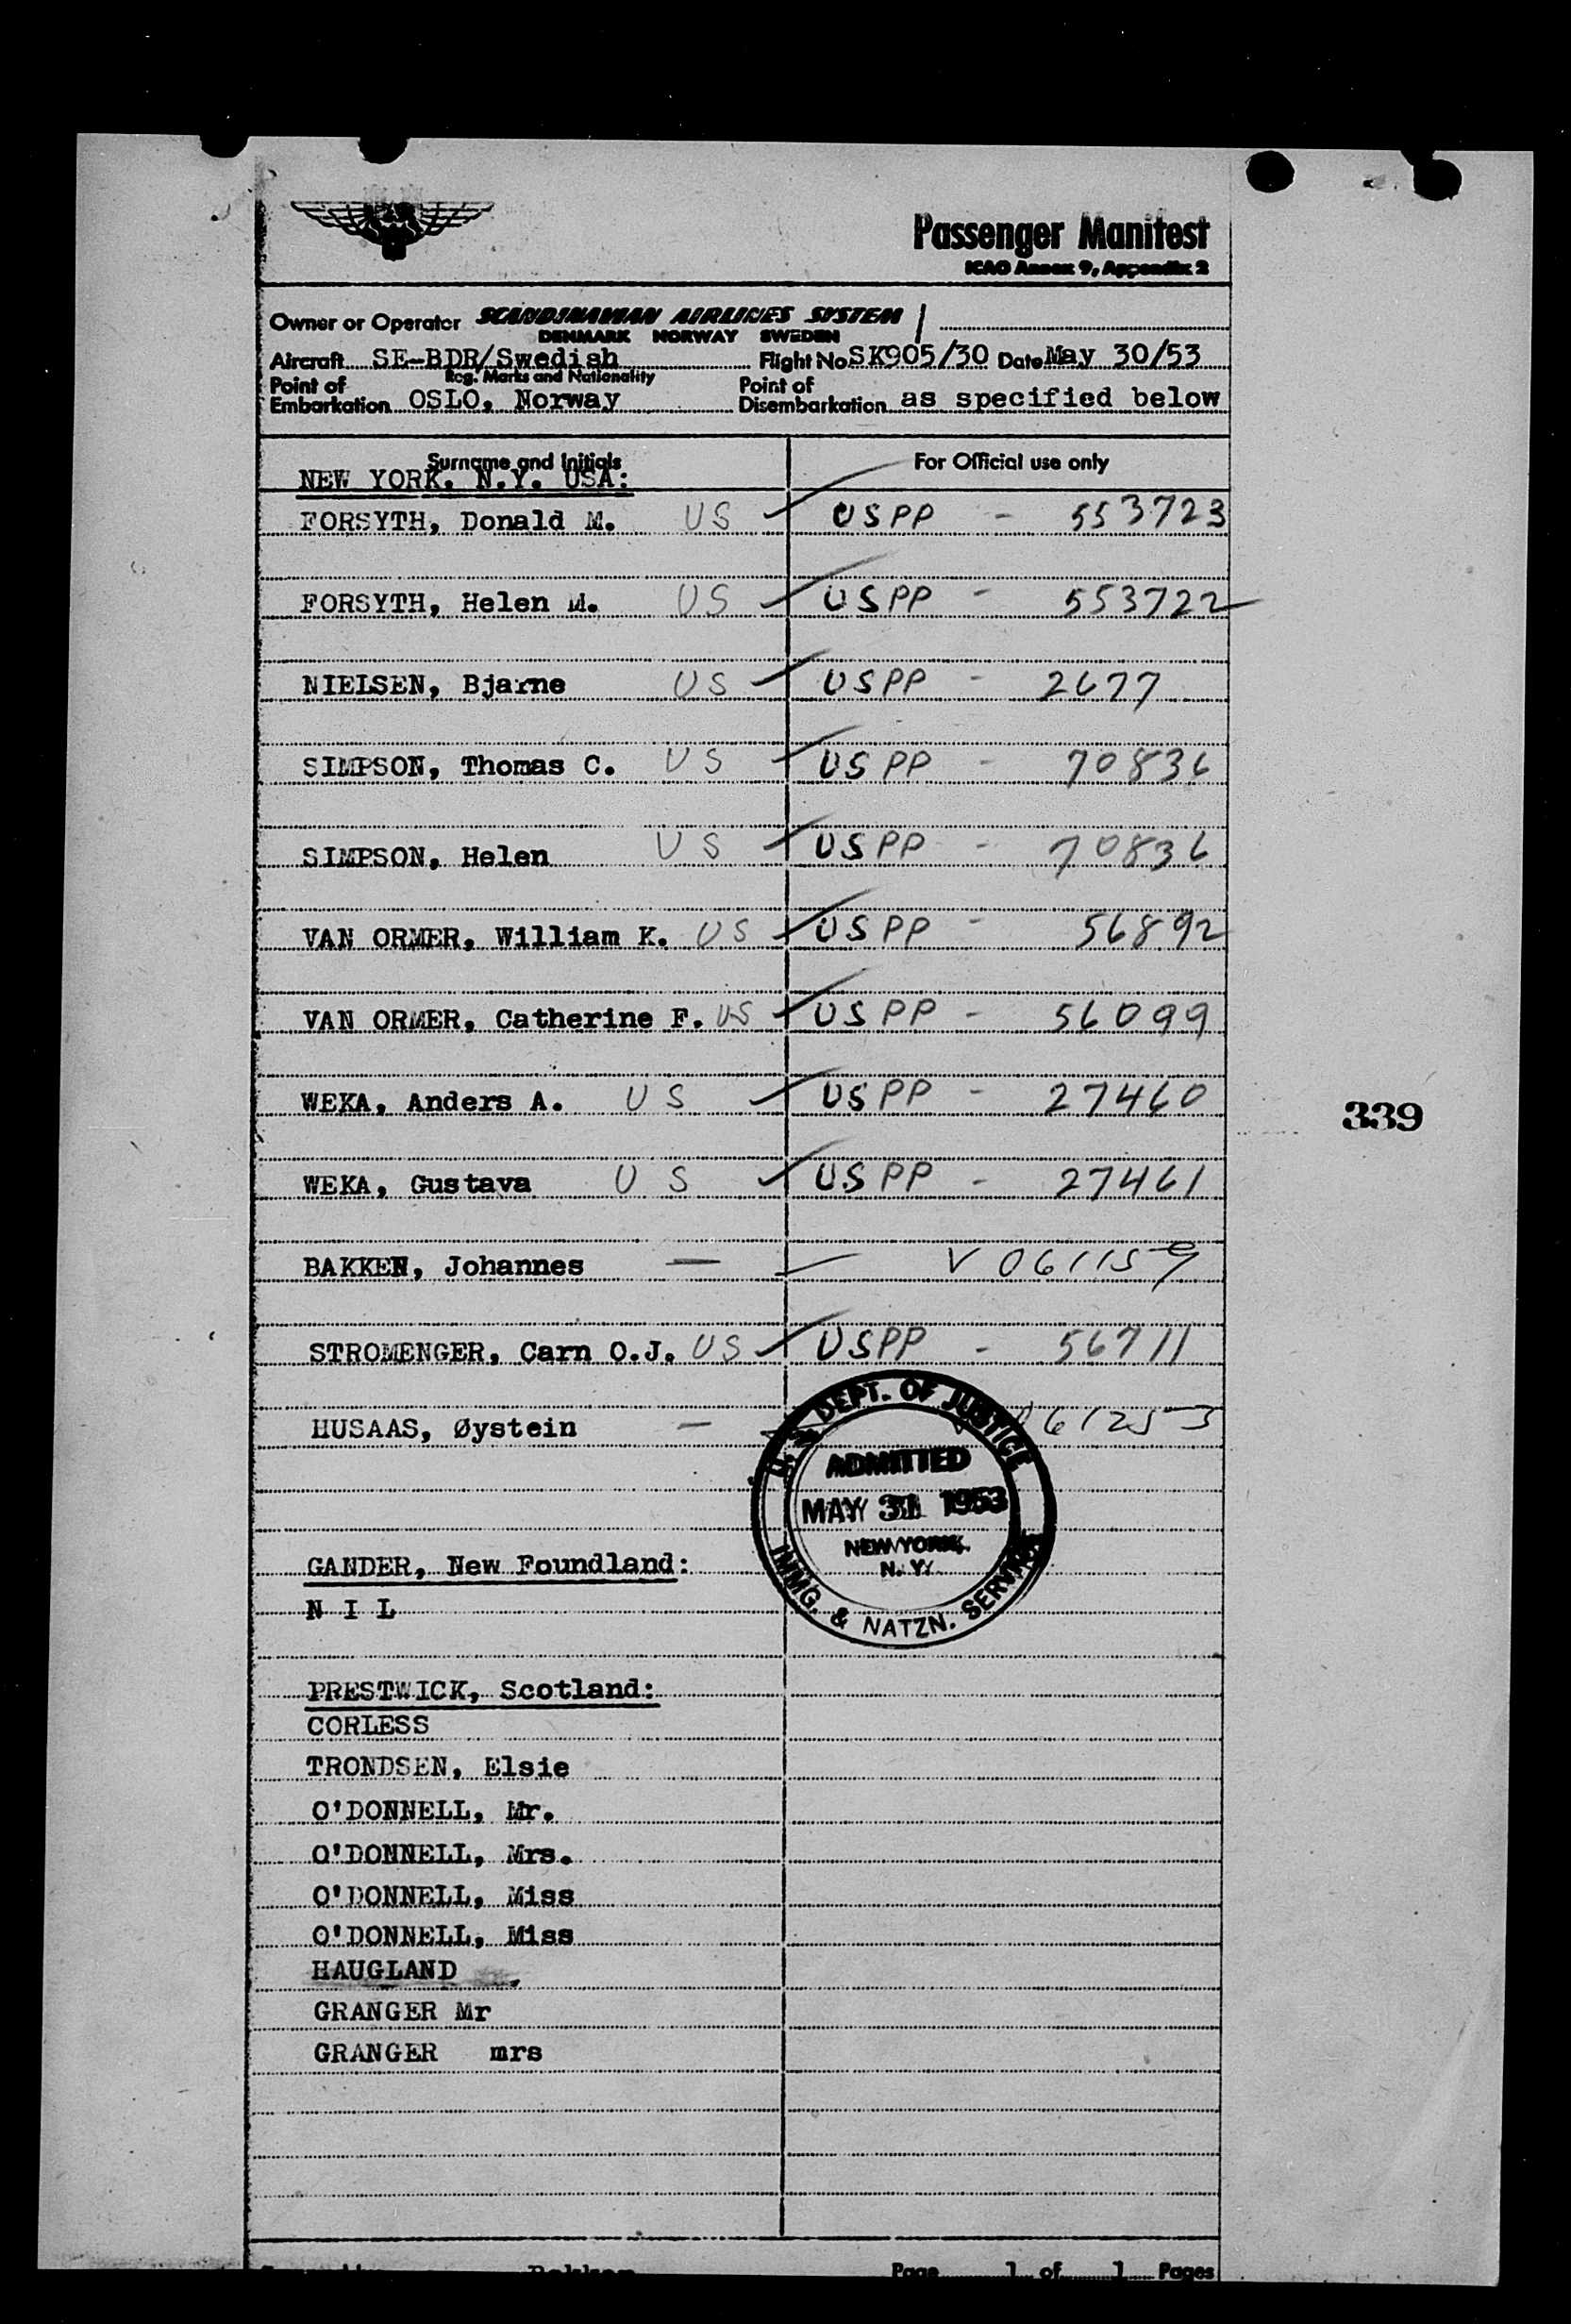 Passenger Manifest
ICAO Annex 9, Appendix 2
Owner or Operator SCANDINAVIAN AIRLINES SYSTEM
DENMARK NORWAY SWEDEN
Aircraft SE-BDR/Swedish Flight No SK905/30 Date May 30/53
Reg. Marks and Nationality
Point of Embarkation OSLO, Norway Point of Disembarkation as specified below
Surname and Initials For Official use only
NEW YORK. N.Y. USA:
FORSYTH, Donald M. US USPP - 553723
FORSYTH, Helen M. US USPP - 553722
NIELSEN, Bjarne US USPP - 2677
SIMPSON, Thomas C. US USPP - 70836
SIMPSON, Helen US USPP - 70836
VAN ORMER, William K. US USPP - 56892
VAN ORMER, Catherine F. US USPP - 56099
WEKA, Anders A. US USPP - 27460
339
WEKA, Gustava US USPP - 27461
BAKKEN, Johannes — V 061159
STROMENGER, Carn O.J. US USPP - 56711
HUSAAS, Øystein — 061253
U.S. DEPT. OF JUSTICE
ADMITTED
MAY 31 1953
NEW YORK,
N.Y.
IMMG. & NATZN. SERVICE
GANDER, New Foundland:
N I L
PRESTWICK, Scotland:
CORLESS
TRONDSEN, Elsie
O'DONNELL, Mr.
O'DONNELL, Mrs.
O'DONNELL, Miss
O'DONNELL, Miss
HAUGLAND
GRANGER Mr
GRANGER mrs
Page 1 of 1 Pages